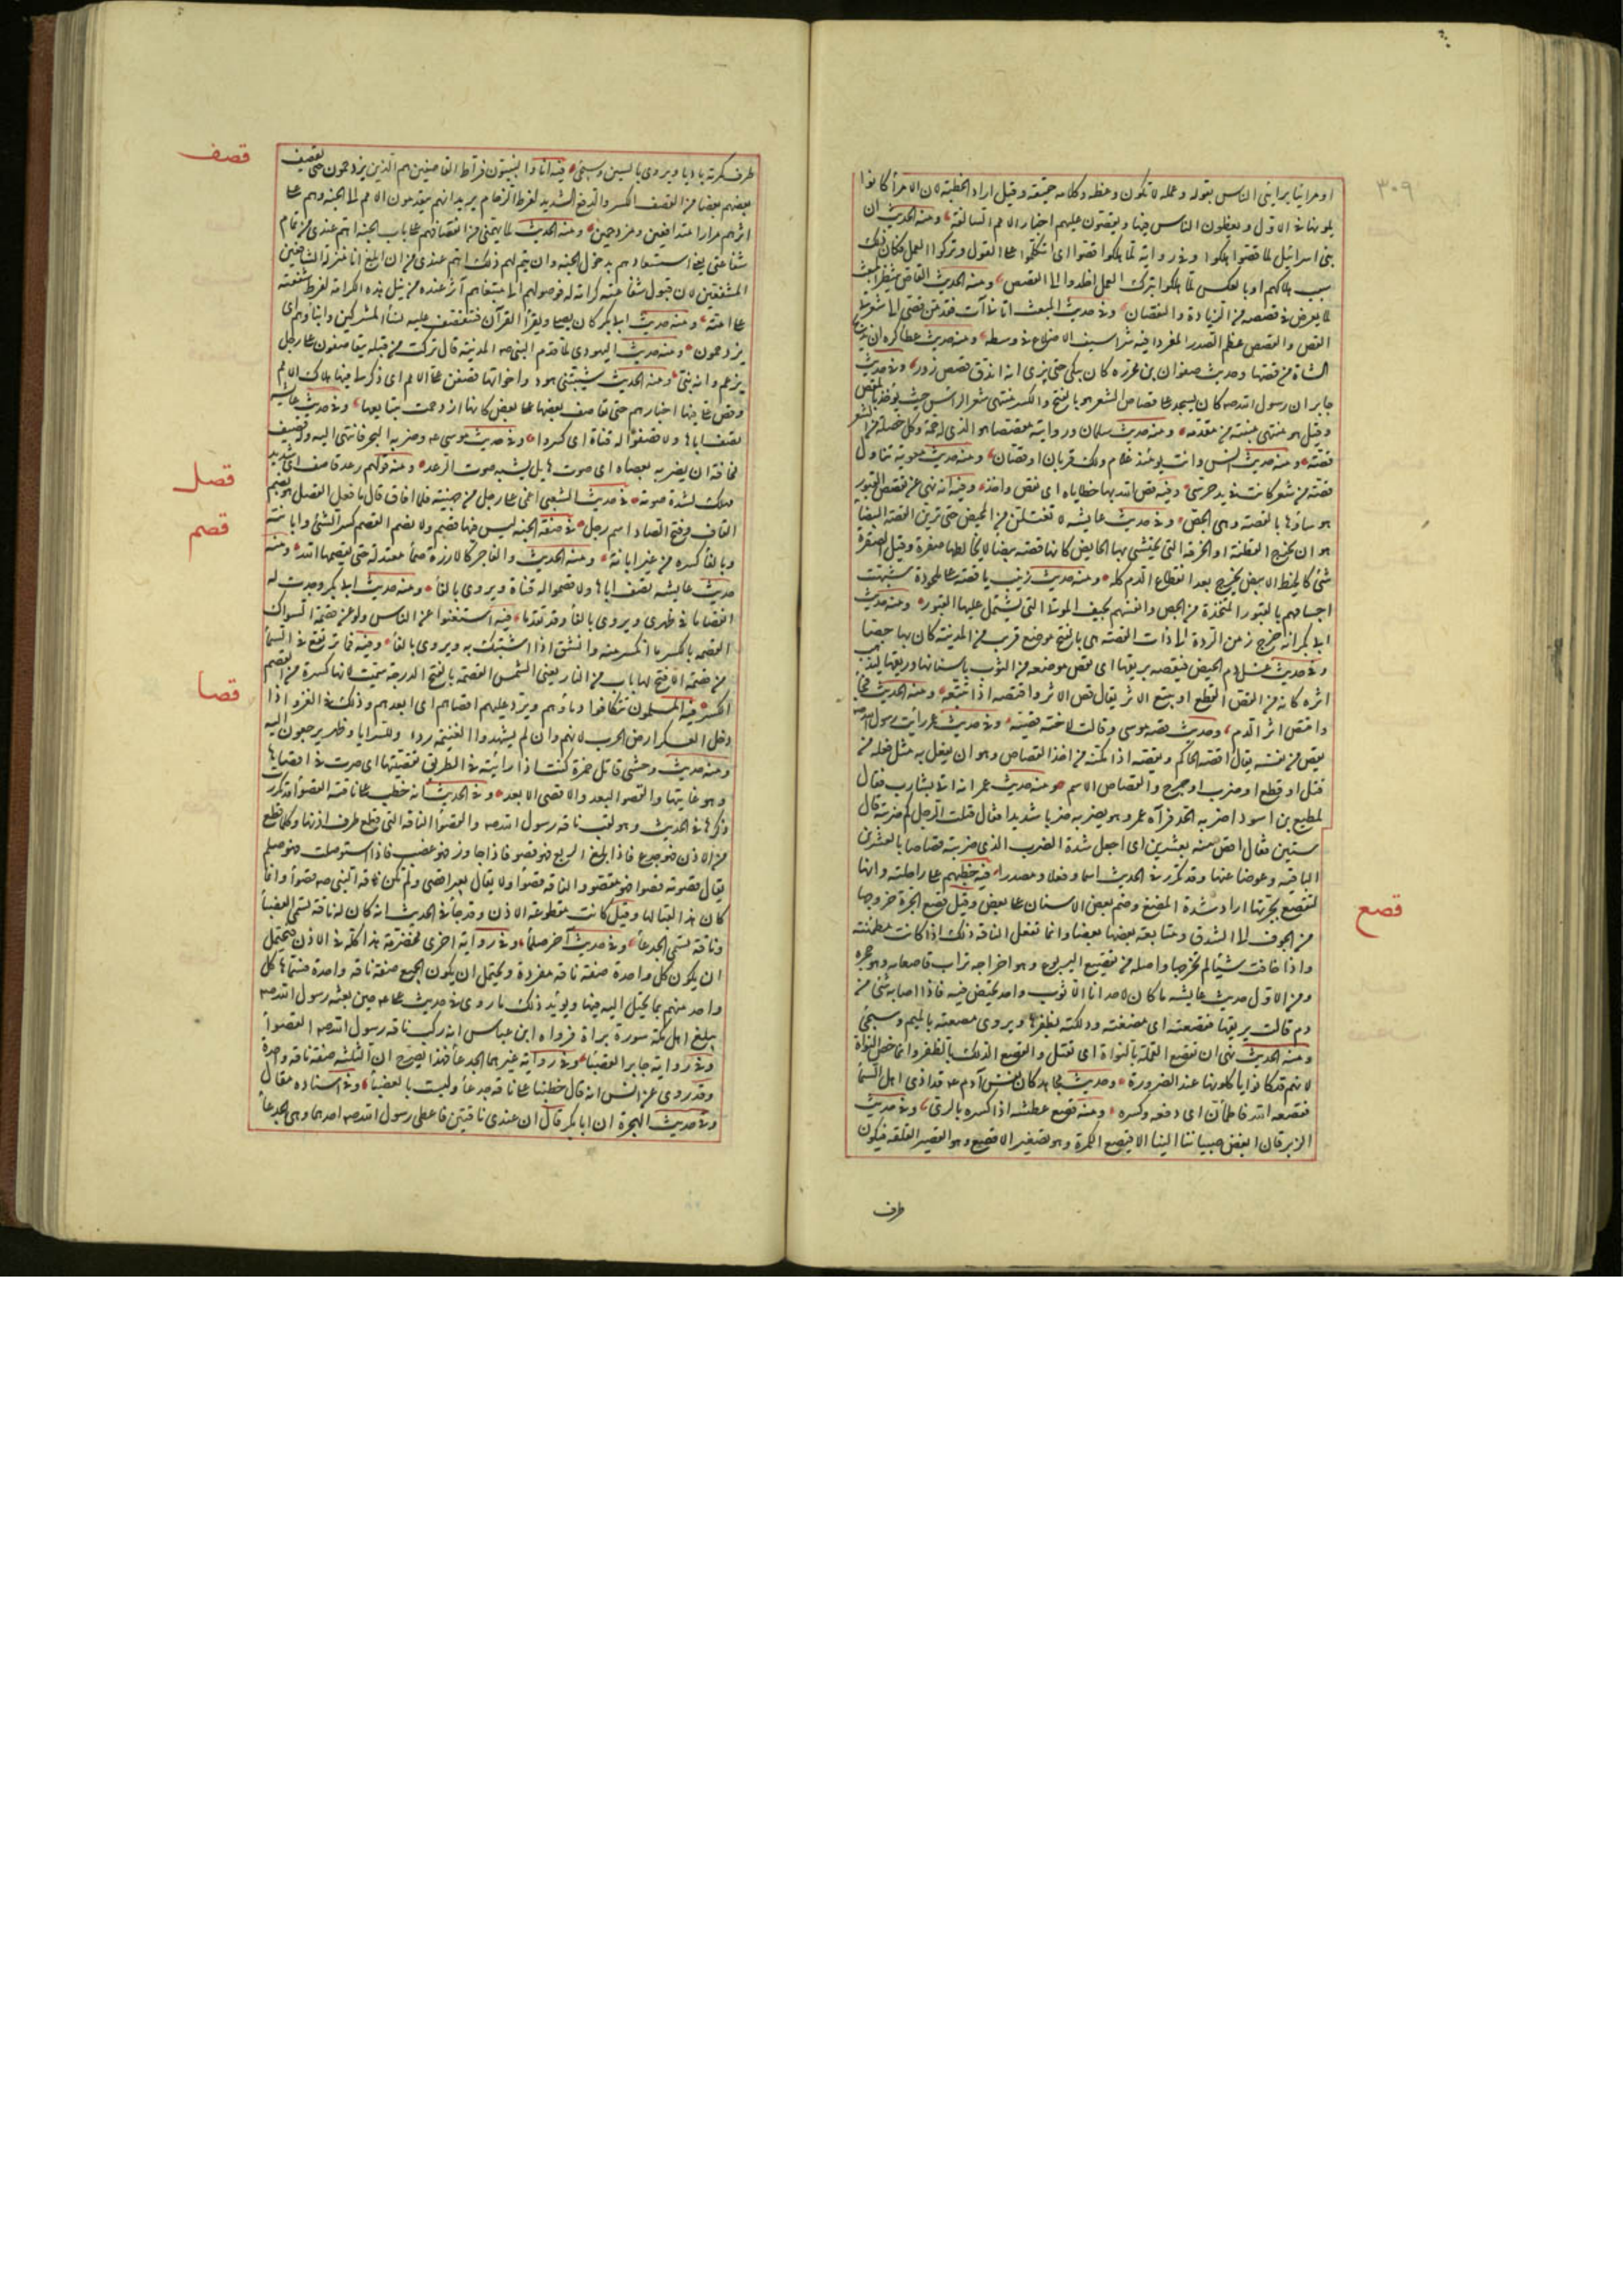 ٣٠٩
او مرائيا يرائي الناس بقوله وعمله لا تكون وعظه وكلامه حقيقة وقيل اراد الخطبة لان الامرأ كانوا
يلونها في الاول ويعظون الناس فيها ويقصون عليهم اخبار الامم السالفة ومنه الحديث ان
بني اسرائيل لما قصوا هلكوا وفي رواية لما هلكوا قصوا اي اتكلوا على القول وتركوا العمل فكان ذلك
سبب هلاكهم او بالعكس لما هلكوا بترك العمل اخلدوا الى القصص ومنه الحديث القاص ينتظر المقت
لما يعرض في قصصه من الزيادة والنقصان وفي حديث المبعث اتاني آت فقد من قصي الى شعرتي
القص والقصص عظم الصدر المغروز فيه شراسيف الاضلاع في وسطه ومنه حديث عطا كره ان تذبح
الشاة من قصها وحديث صفوان بن محرز كان يبكي حتى يرى انه اندق قصص زوره وفي حديث
جابر ان رسول الله صه كان يسجد على قصاص الشعر هو بالفتح والكسر منتهى شعر الراس حيث يؤخذ بالمقص
وقيل هو منتهى منبته من مقدمه ومنه حديث سلمان ورواية مقصصا هو الذي له جمة وكل خصلة من الشعر
قصة ومنه حديث انس وانت يومئذ غلام ولك قرنان او قصتان ومنه حديث معوية تناول
قصة من شعر كانت في يد حرسي وفيه قص الله بها خطاياه اي نقص واخذ وفيه انه نهى عن تقصيص القبور
هو بناؤها بالقصة وهي الجص وفي حديث عايشه لا تغتسلن من المحيض حتى ترين القصة البيضا
هو ان تخرج القطنة او الخرقة التي تحتشي بها الحايض كانها قصة بيضا لا يخالطها صفرة وقيل القصة
شئ كالخيط الابيض يخرج بعد انقطاع الدم كله ومنه حديث زينب يا قصة على ملحودة شبهت
اجسامهم بالقبور المتخذة من الجص وانفسهم بجيف الموتى التي يشتمل عليها القبور ومنه حديث
ابي بكر انه خرج زمن الردة الى ذات القصة هي بالفتح موضع قريب من المدينة كان بها جصا
وفي حديث غسل دم الحيض فتقصه بريقها اي تعض موضعه من الثوب باسنانها وريقها ليذهب
اثره كانه من القص القطع او تتبع الاثر يقال قص الاثر واقتصه اذا تتبعه ومنه الحديث فجا
واقتص اثر الدم وحديث قصة موسى وقالت لاخته قصيه وفي حديث عمر رأيت رسول الله صه
يقص من نفسه يقال اقصه الحاكم يقصه اذا مكنه من اخذ القصاص وهو ان يفعل به مثل فعله من
قتل او قطع او ضرب او جرح والقصاص الاسم ومنه حديث عمر انه اتي بشارب فقال
لمطيع بن اسود اضربه الحد فرآه عمر وهو يضربه ضربا شديدا فقال قتلت الرجل كم ضربته قال
ستين فقال اقص عنه بعشرين اي اجعل شدة الضرب الذي ضربته قصاصا بالعشرين
الباقية وعوضا عنها وقد تكرر في الحديث اسما وفعلا ومصدرا فيه خطبهم على راحلته وانها
قصع
لتقصع بجرتها اراد شدة المضغ وضم بعض الاسنان على بعض وقيل قصع الجرة خروجها
من الجوف الى الشدق ومتابعة بعضها بعضا وانما تفعل الناقه ذلك اذا كانت مطمئنة
واذا خافت شيئا لم تخرجها واصله من تقصيع اليربوع وهو اخراجه تراب قاصعايه وهو جحره
ومن الاول حديث عايشه ما كان لاحدانا الا ثوب واحد تحيض فيه فاذا اصابه شئ من
دم قالت بريقها فقصعته اي مضغته ودلكته بظفرها ويروى مصعته بالميم وسيجئ
ومنه الحديث نهى ان تقصع القملة بالنواة اي تقتل والقصع الدلك بالظفر وانما خص النواة
لانهم قد كانوا ياكلونها عند الضرورة وحديث مجاهد كان نفس آدم عه قد اذى اهل السما
فقصعه الله قصعة فاطمأن اي دفعه وكسره ومنه قصع عطشه اذا كسره بالري وفي حديث
الزبرقان ابغض صبياننا الينا الاقيصع الكمرة وهو تصغير الاقصع وهو القصير القلفة فيكون
طرف
طرف كمرته باديا ويروى بالسين وسيجئ فيه انا والنبيون فراط القاصفين هم الذين يزدحمون حتى يقصف
قصف
بعضهم بعضا من القصف الكسر والدفع الشديد لفرط الزحام يريد انهم يتقدمون الامم الى الجنة وهم على
اثرهم بدارا متدافعين ومزدحمين ومنه الحديث لما يهمني من انقصافهم على باب الجنة اهم عندي من تمام
شفاعتي يعني استسعادهم بدخول الجنة وان يتم لهم ذلك اهم عندي من ان ابلغ انا منزلة الشافعين
المشفعين لان قبول شفاعته كرامة له فوصولهم الى مبتغاهم آثر عنده من نيل هذه الكرامة لفرط شفقته
على امته ومنه حديث ابي بكر كان يصلي ويقرأ القرآن فتتقصف عليه نسأ المشركين وابناؤهم اي
يزدحمون ومنه حديث اليهودي لما قدم النبي صه المدينة قال تركت بني قيلة يتقاصفون على رجل
يزعم انه نبي ومنه الحديث شيبتني هود واخواتها قصفن على الامم اي ذكر لي فيها هلاك الامم
وقص علي فيها اخبارهم حتى تقاصف بعضها على بعض كانها ازدحمت بتتابعها وفي حديث عايشه
تصف اباها ولا قصفوا له قناة اي كسروا وفي حديث موسى عه وضربه البحر فانتهى اليه وله قصيف
مخافة ان يضربه بعصاه اي صوت هايل يشبه صوت الرعد ومنه قولهم رعد قاصف اي شديد
مهلك لشدة صوته في حديث الشعبي اغمي على رجل من جهينه فلما افاق قال ما فعل القصل هو بضم
قصل
القاف وفتح الصاد اسم رجل في صفة الجنه ليس فيها قصم ولا فصم القصم كسر الشئ وابانته
قصم
وبالفا كسره من غير ابانة ومنه الحديث والفاجر كالارزة صمأ معتدلة حتى يقصمها الله ومنه
حديث عايشه تصف اباها ولا قصموا له قناة ويروى بالفا ومنه حديث ابي بكر وجدت له
انقصاما في ظهري ويروى بالفا وقد تقدما فيه استغنوا عن الناس ولو عن قصمة السواك
القصمه بالكسر ما انكسر منه وانشق اذا استيك به ويروى بالفا وفيه فما ترتفع في السمأ
من قصمة الا فتح لها باب من النار يعني الشمس القصمة بالفتح الدرجة سميت لانها كسرة من القصم
الكسر فيه المسلمون تتكافوا دماؤهم ويرد عليهم اقصاهم اي ابعدهم وذلك في الغزو اذا
قصا
دخل العسكر ارض الحرب لانهم وان لم يشهدوا الغنيمه ردء للسرايا وظهر يرجعون اليه
ومنه حديث وحشي قاتل حمزة كنت اذا رأيته في الطريق تقصيتها اي صرت في اقصاها
وهو غايتها والقصو البعد والاقصى الابعد وفي الحديث انه خطب على ناقته القصوأ قد تكرر
ذكرها في الحديث وهو لقب ناقه رسول الله صه والقصوا الناقه التي قطع طرف اذنها وكلما قطع
من الاذن فهو جدع فاذا بلغ الربع فهو قصو فاذا جاوز فهو عضب فاذا استوصلت فهو صلم
يقال قصوته قصوا فهو مقصو والناقه قصوأ ولا يقال بعير اقصى ولم تكن ناقه النبي صه قصوأ وانما
كان هذا لقبا لها وقيل كانت مقطوعة الاذن وقد جأ في الحديث انه كان له ناقه تسمى العضبأ
وناقه تسمى الجدعأ وفي حديث آخر صلمأ وفي رواية اخرى مخضرمة هذا كله في الاذن فيحتمل
ان يكون كل واحدة صفة ناقه مفردة ويحتمل ان يكون الجميع صفة ناقه واحدة فسماها كل
واحد منهم بما يخيل اليه فيها ويؤيد ذلك ما روي في حديث علي عه حين بعثه رسول الله صه
يبلغ اهل مكة سورة براة فرواه ابن عباس انه ركب ناقه رسول الله صه القصوأ
وفي رواية جابر العضبا وفي رواية غيرهما الجدعأ فهذا يصرح ان الثلثه صفة ناقه واحدة
وقد روي عن انس انه قال خطبنا على ناقه جدعأ وليست بالعضبأ وفي اسناده مقال
وفي حديث الهجرة ان ابا بكر قال ان عندي ناقتين فاعطى رسول الله صه احدهما وهي الجدعأ